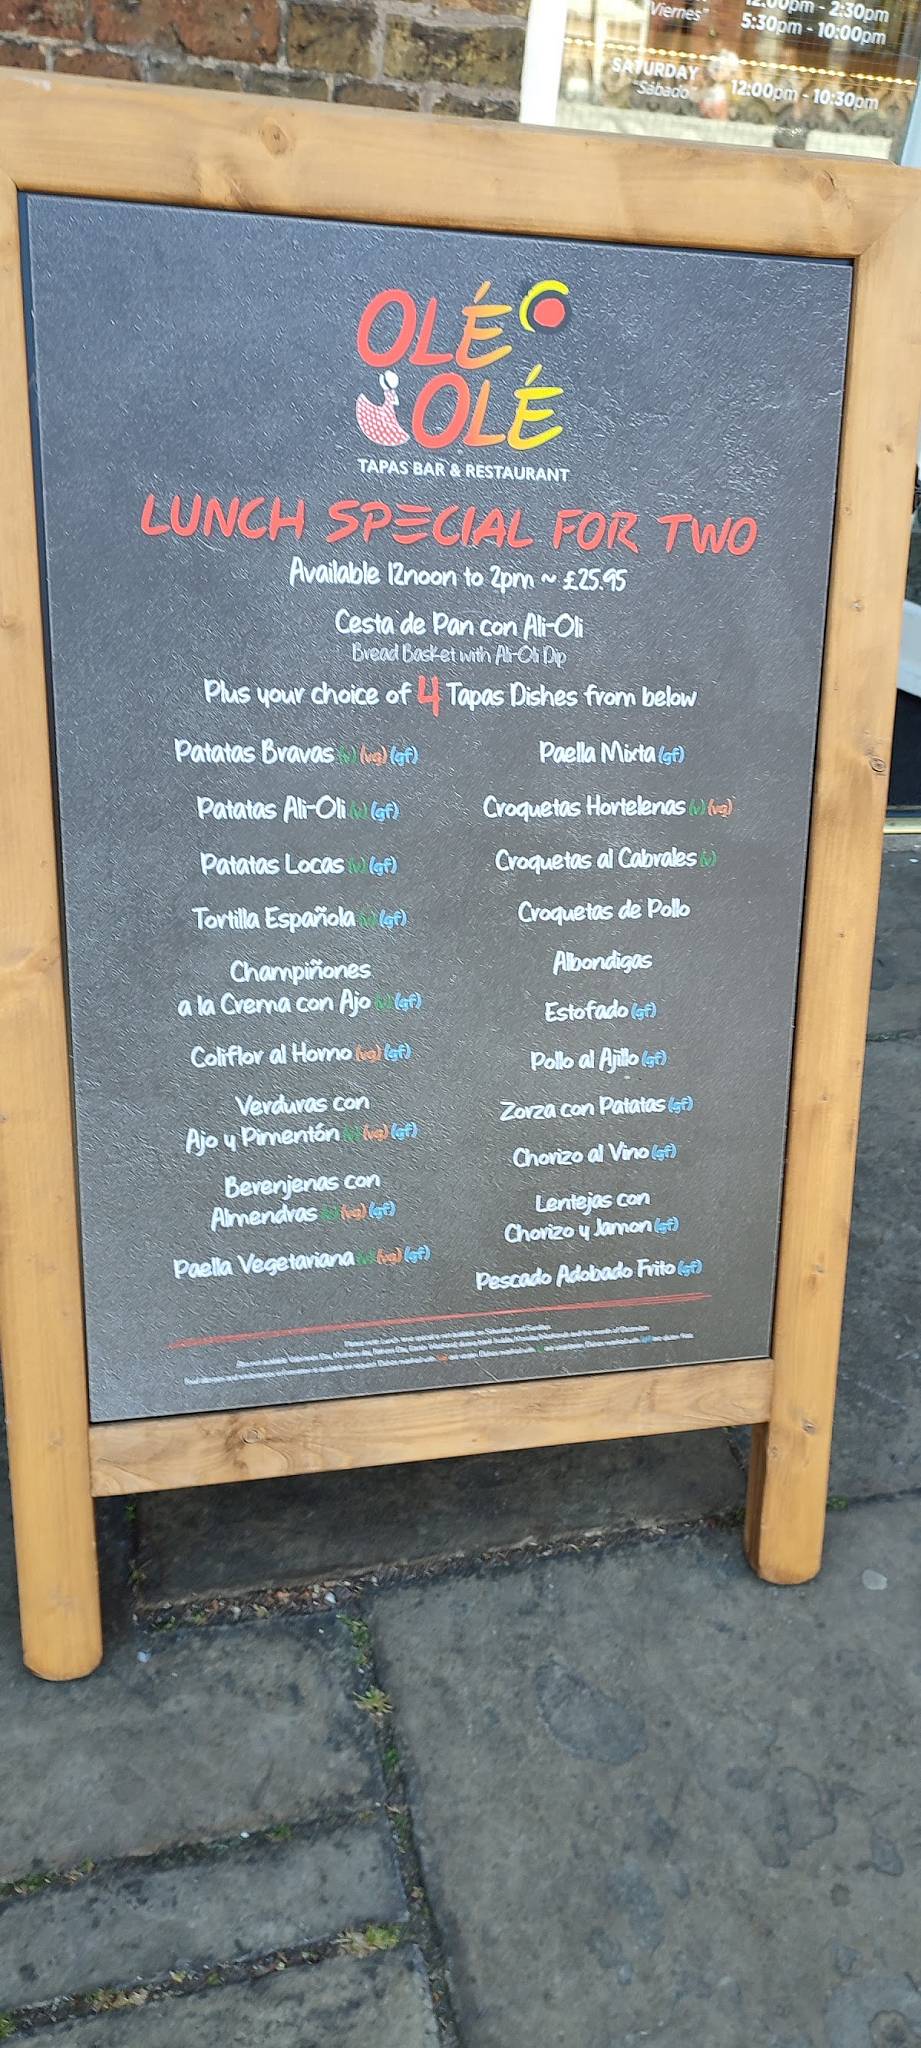 "Viernes"
12:00pm - 2:30pm
5:30pm - 10:00pm
SATURDAY
"Sábado"
12:00pm - 10:30pm
OLÉ
OLÉ
TAPAS BAR & RESTAURANT
LUNCH SPECIAL FOR TWO
Available 12noon to 2pm ~ £25.95
Cesta de Pan con Ali-Oli
Bread Basket with Ali-Oli Dip
Plus your choice of 4 Tapas Dishes from below
Patatas Bravas (v) (vg) (gf)
Patatas Ali-Oli (v) (gf)
Patatas Locas (v) (gf)
Tortilla Española (v) (gf)
Champiñones
a la Crema con Ajo (v) (gf)
Coliflor al Horno (vg) (gf)
Verduras con
Ajo y Pimentón (v) (vg) (gf)
Berenjenas con
Almendras (v) (vg) (gf)
Paella Vegetariana (v) (vg) (gf)
Paella Mixta (gf)
Croquetas Hortelenas (v) (vg)
Croquetas al Cabrales (v)
Croquetas de Pollo
Albondigas
Estofado (gf)
Pollo al Ajillo (gf)
Zorza con Patatas (gf)
Chorizo al Vino (gf)
Lentejas con
Chorizo y Jamon (gf)
Pescado Adobado Frito (gf)